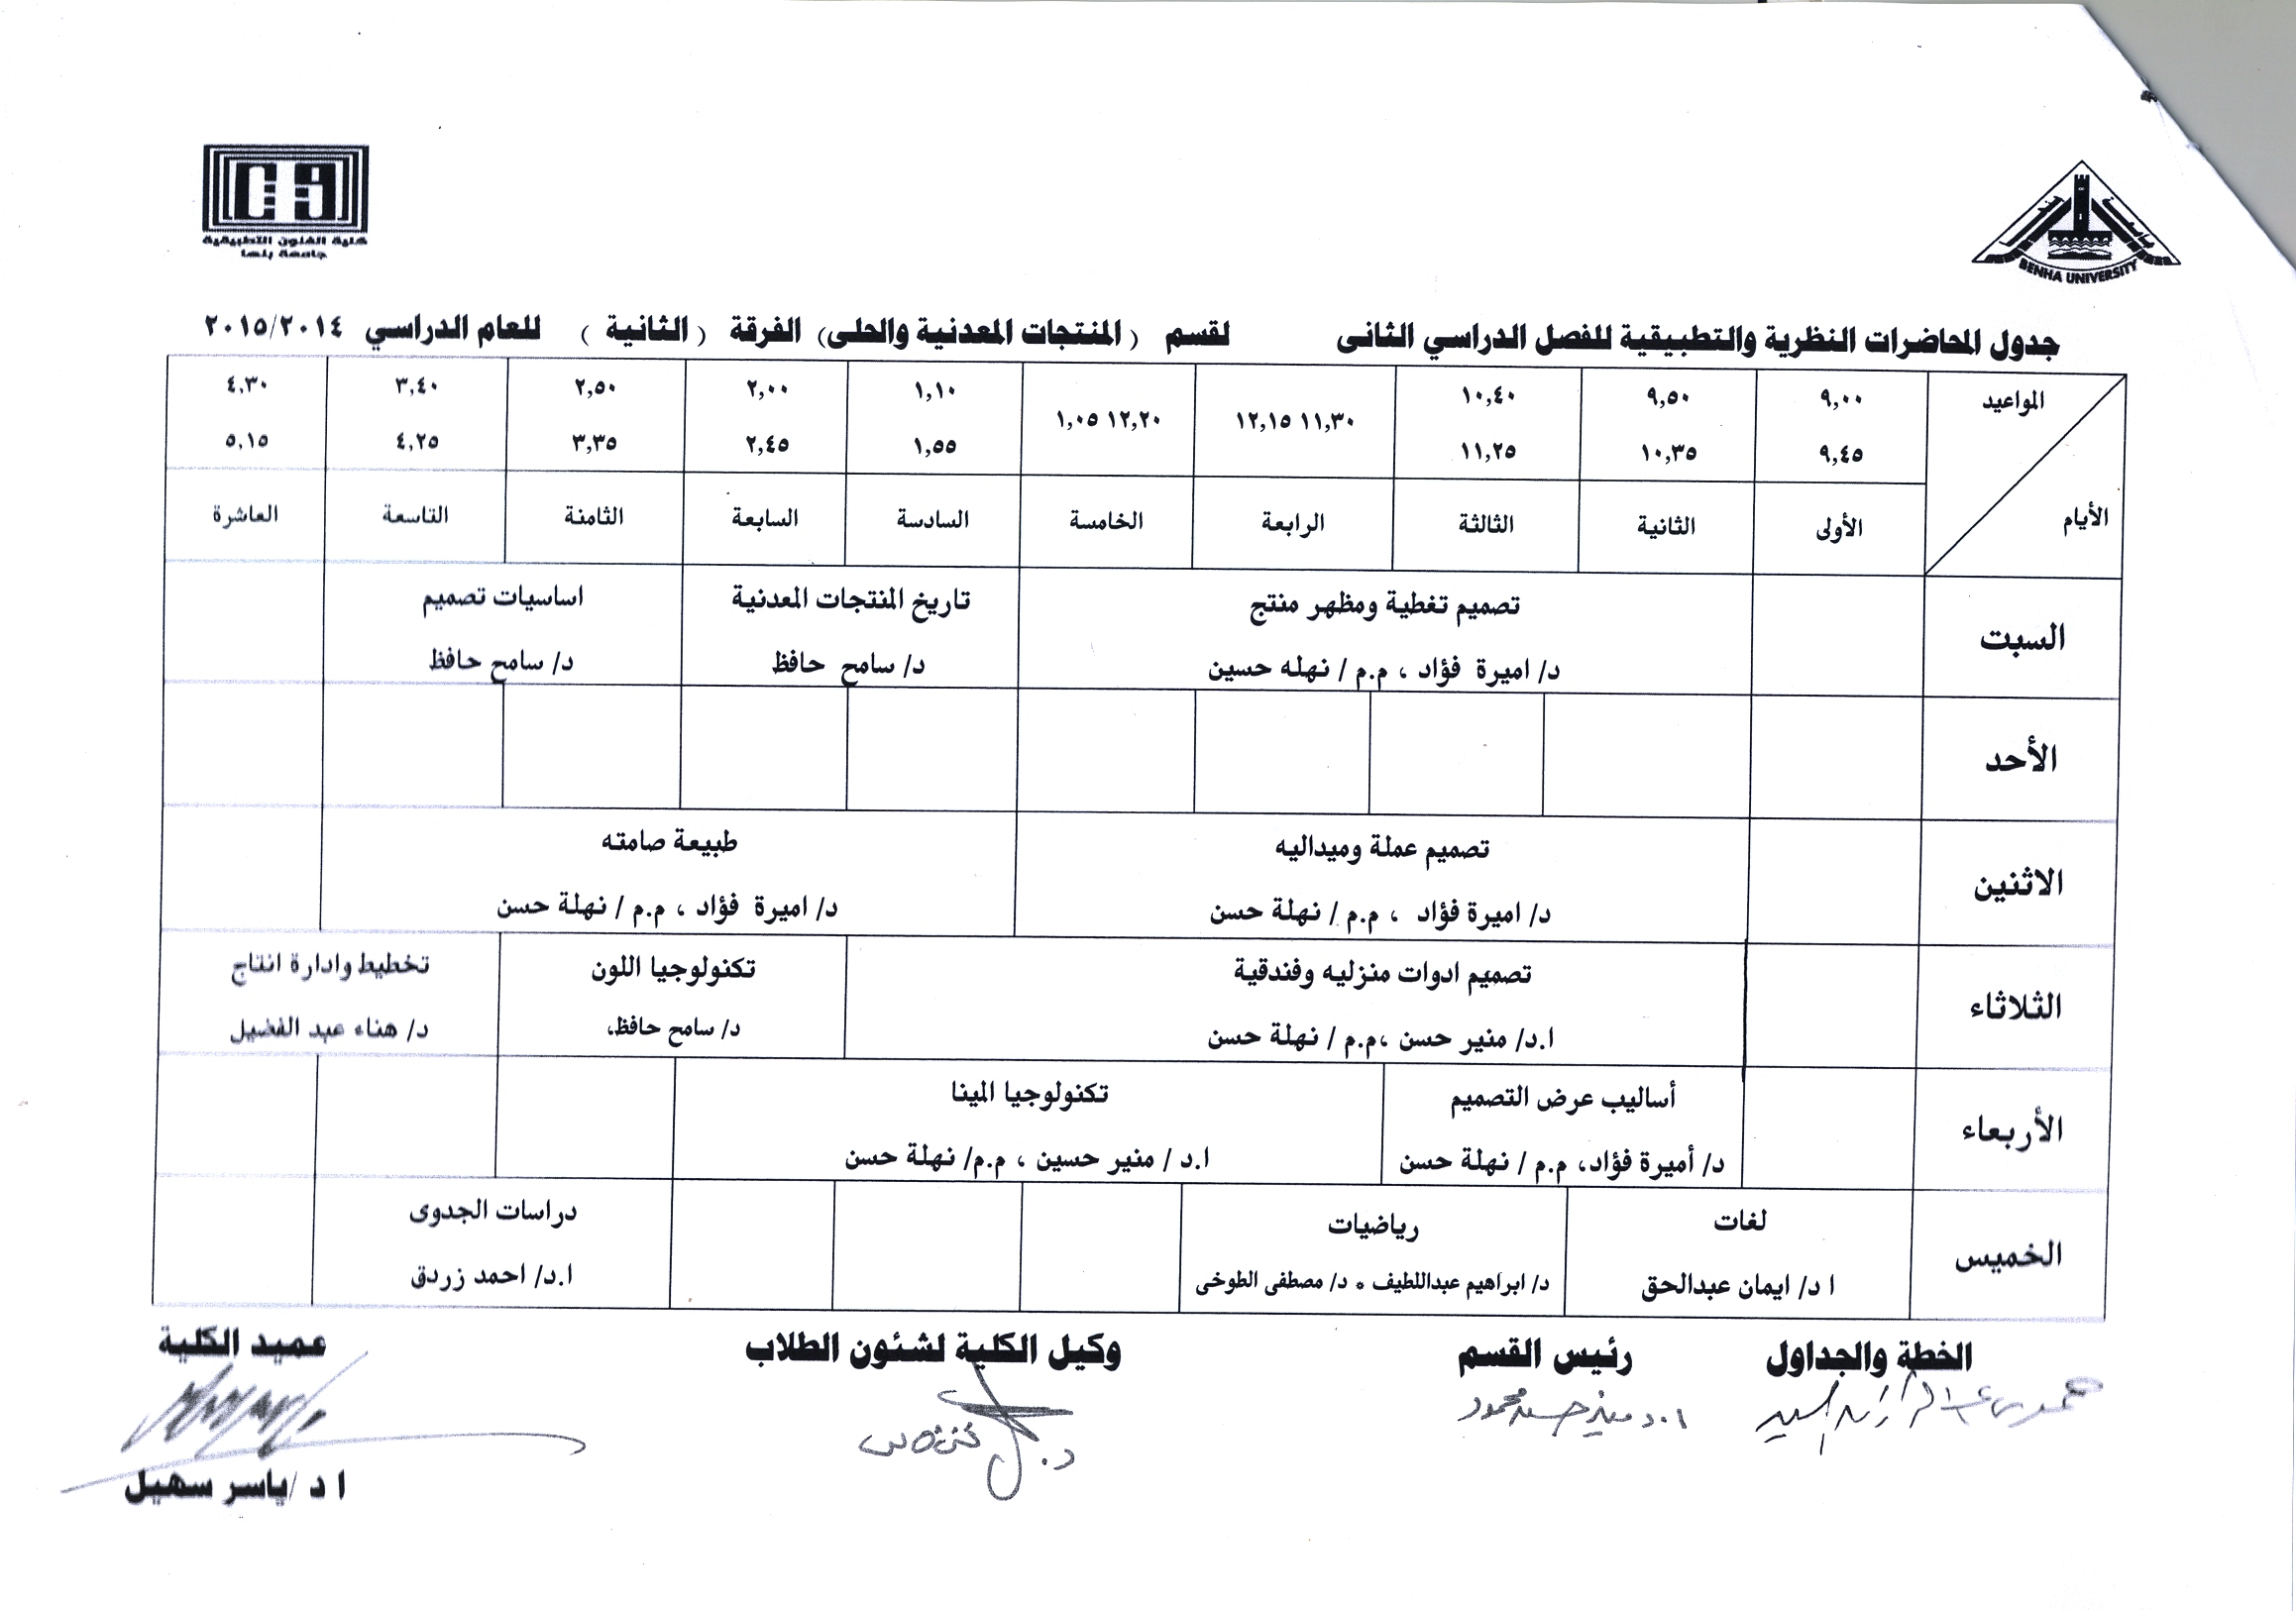 كلية الفنون التطبيقية
جامعة بنها
BENHA UNIVERSITY
جدول المحاضرات النظرية والتطبيقية للفصل الدراسي الثانى لقسم (المنتجات المعدنية والحلى) الفرقة (الثانية) للعام الدراسي ٢٠١٥/٢٠١٤
المواعيد
الأيام
٩,٠٠ ٩,٥٠ ١٠,٤٠ ١١,٣٠ ١٢,١٥ ١٢,٢٠ ١,٠٥ ١,١٠ ٢,٠٠ ٢,٥٠ ٣,٤٠ ٤,٣٠
٩,٤٥ ١٠,٣٥ ١١,٢٥ ١,٥٥ ٢,٤٥ ٣,٣٥ ٤,٢٥ ٥,١٥
الأولى الثانية الثالثة الرابعة الخامسة السادسة السابعة الثامنة التاسعة العاشرة
السبت
تصميم تغطية ومظهر منتج
د/ اميرة فؤاد ، م.م / نهله حسين
تاريخ المنتجات المعدنية
د/ سامح حافظ
اساسيات تصميم
د/ سامح حافظ
الأحد
الاثنين
تصميم عملة وميداليه
د/ اميرة فؤاد ، م.م / نهلة حسن
طبيعة صامته
د/ اميرة فؤاد ، م.م / نهلة حسن
الثلاثاء
تصميم ادوات منزليه وفندقية
ا.د/ منير حسن ،م.م / نهلة حسن
تكنولوجيا اللون
د/ سامح حافظ،
تخطيط وادارة انتاج
د/ هناء عبد الفضيل
الأربعاء
أساليب عرض التصميم
د/ أميرة فؤاد، م.م / نهلة حسن
تكنولوجيا المينا
ا.د / منير حسين ، م.م/ نهلة حسن
الخميس
لغات
ا د/ ايمان عبدالحق
رياضيات
د/ ابراهيم عبداللطيف * د/ مصطفى الطوخى
دراسات الجدوى
ا.د/ احمد زردق
الخطة والجداول
رئيس القسم
وكيل الكلية لشئون الطلاب
عميد الكلية
ا.د منير حسن محمود
ا د /ياسر سهيل